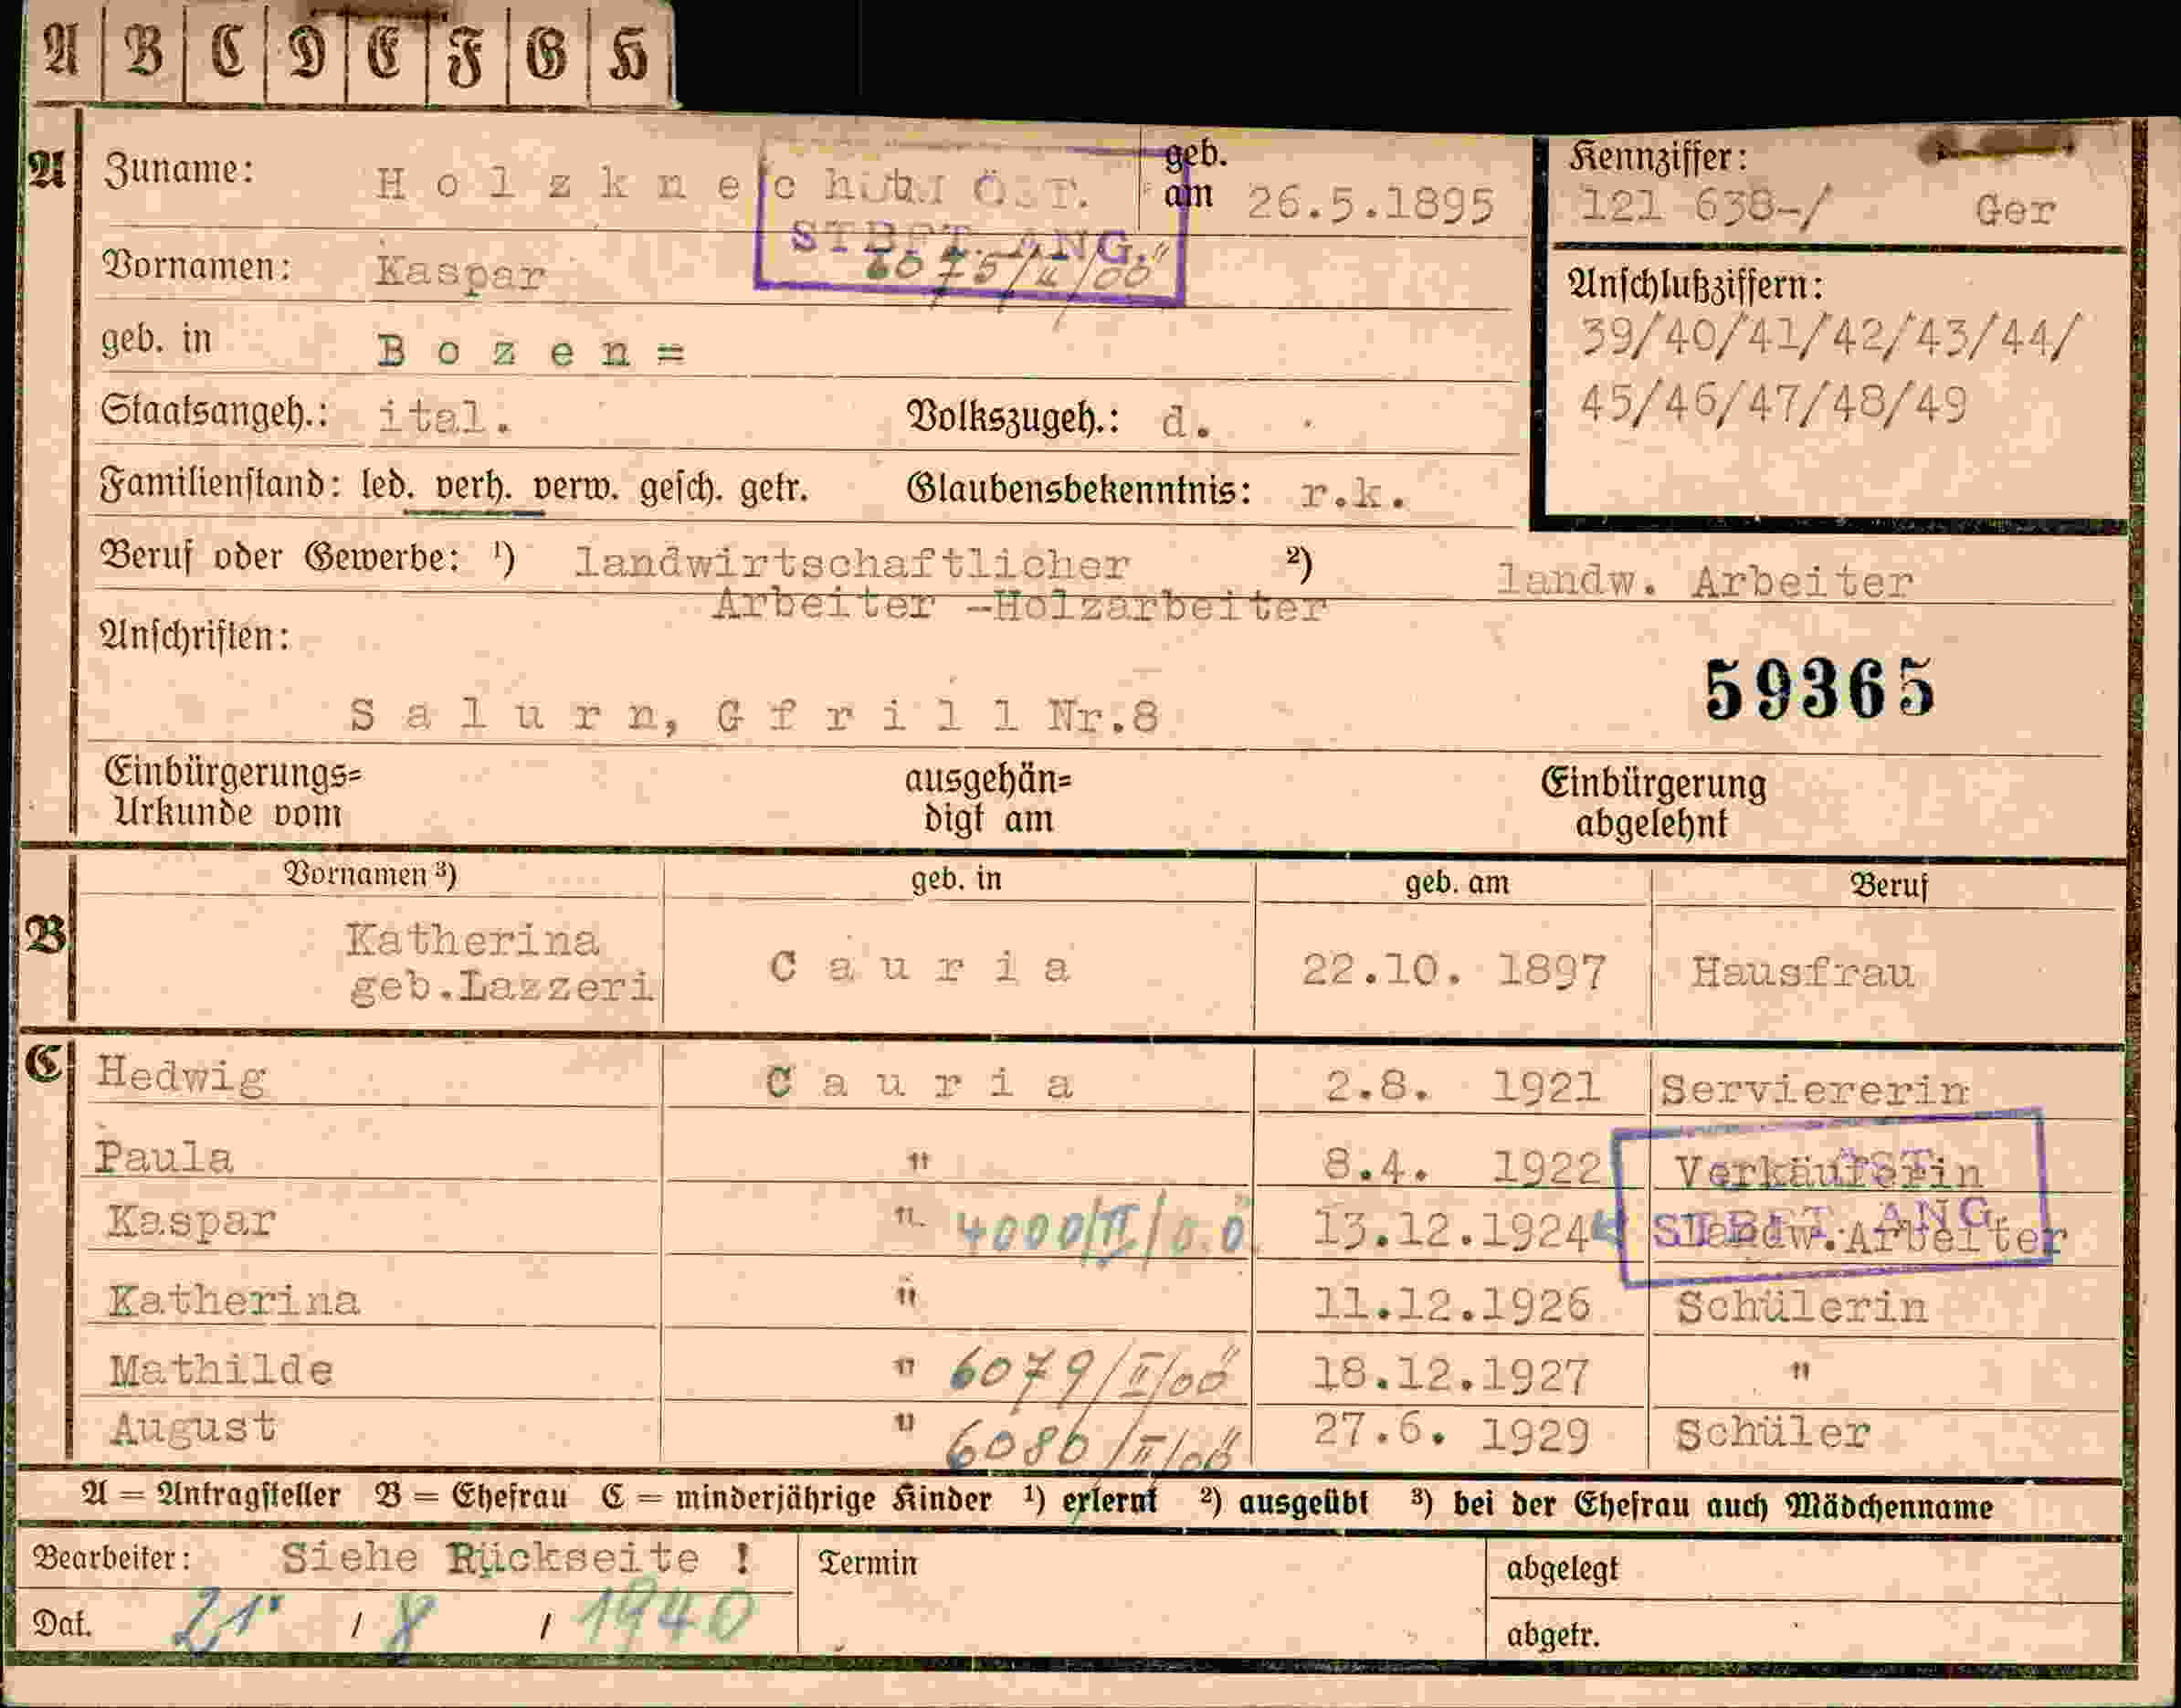 A B C D E F G H
A Zuname: Holzknecht geb. am 26.5.1895
Kennziffer: 121 638-/ Ger
STBFT. ANG.
Vornamen: Kaspar 6075/II/OÖ
Anschlußziffern:
39/40/41/42/43/44/
45/46/47/48/49
geb. in Bozen=
Staatsangeh.: ital. Volkszugeh.: d.
Familienstand: led. verh. verw. gesch. getr. Glaubensbekenntnis: r.k.
Beruf oder Gewerbe: ¹) landwirtschaftlicher ²) landw. Arbeiter
Arbeiter -Holzarbeiter
Anschriften:
59365
Salurn, Gfrill Nr.8
Einbürgerungs= ausgehän= Einbürgerung
Urkunde vom digt am abgelehnt
Vornamen ³) geb. in geb. am Beruf
B Katherina
geb.Lazzeri Cauria 22.10. 1897 Hausfrau
C Hedwig Cauria 2.8. 1921 Serviererin
Paula " 8.4. 1922 Verkäuferin
Kaspar " 4000/II/O.Ö 13.12.1924 Landw.Arbeiter
ANG.
Katherina " 11.12.1926 Schülerin
Mathilde " 6079/II/OÖ 18.12.1927 "
August " 6080/II/OÖ 27.6. 1929 Schüler
A = Antragsteller B = Ehefrau C = minderjährige Kinder ¹) erlernt ²) ausgeübt ³) bei der Ehefrau auch Mädchenname
Bearbeiter: Siehe Rückseite ! Termin abgelegt
Dat. 21. / 8 / 1940 abgetr.